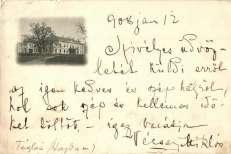 908 jan 12
Szivélyes üdvöz-
letét küldi erről
az igen kedves és szép helyről,
hol sok szép és kellemes idő-
ket töltött, – igaz barátja
Vécsey Miklós